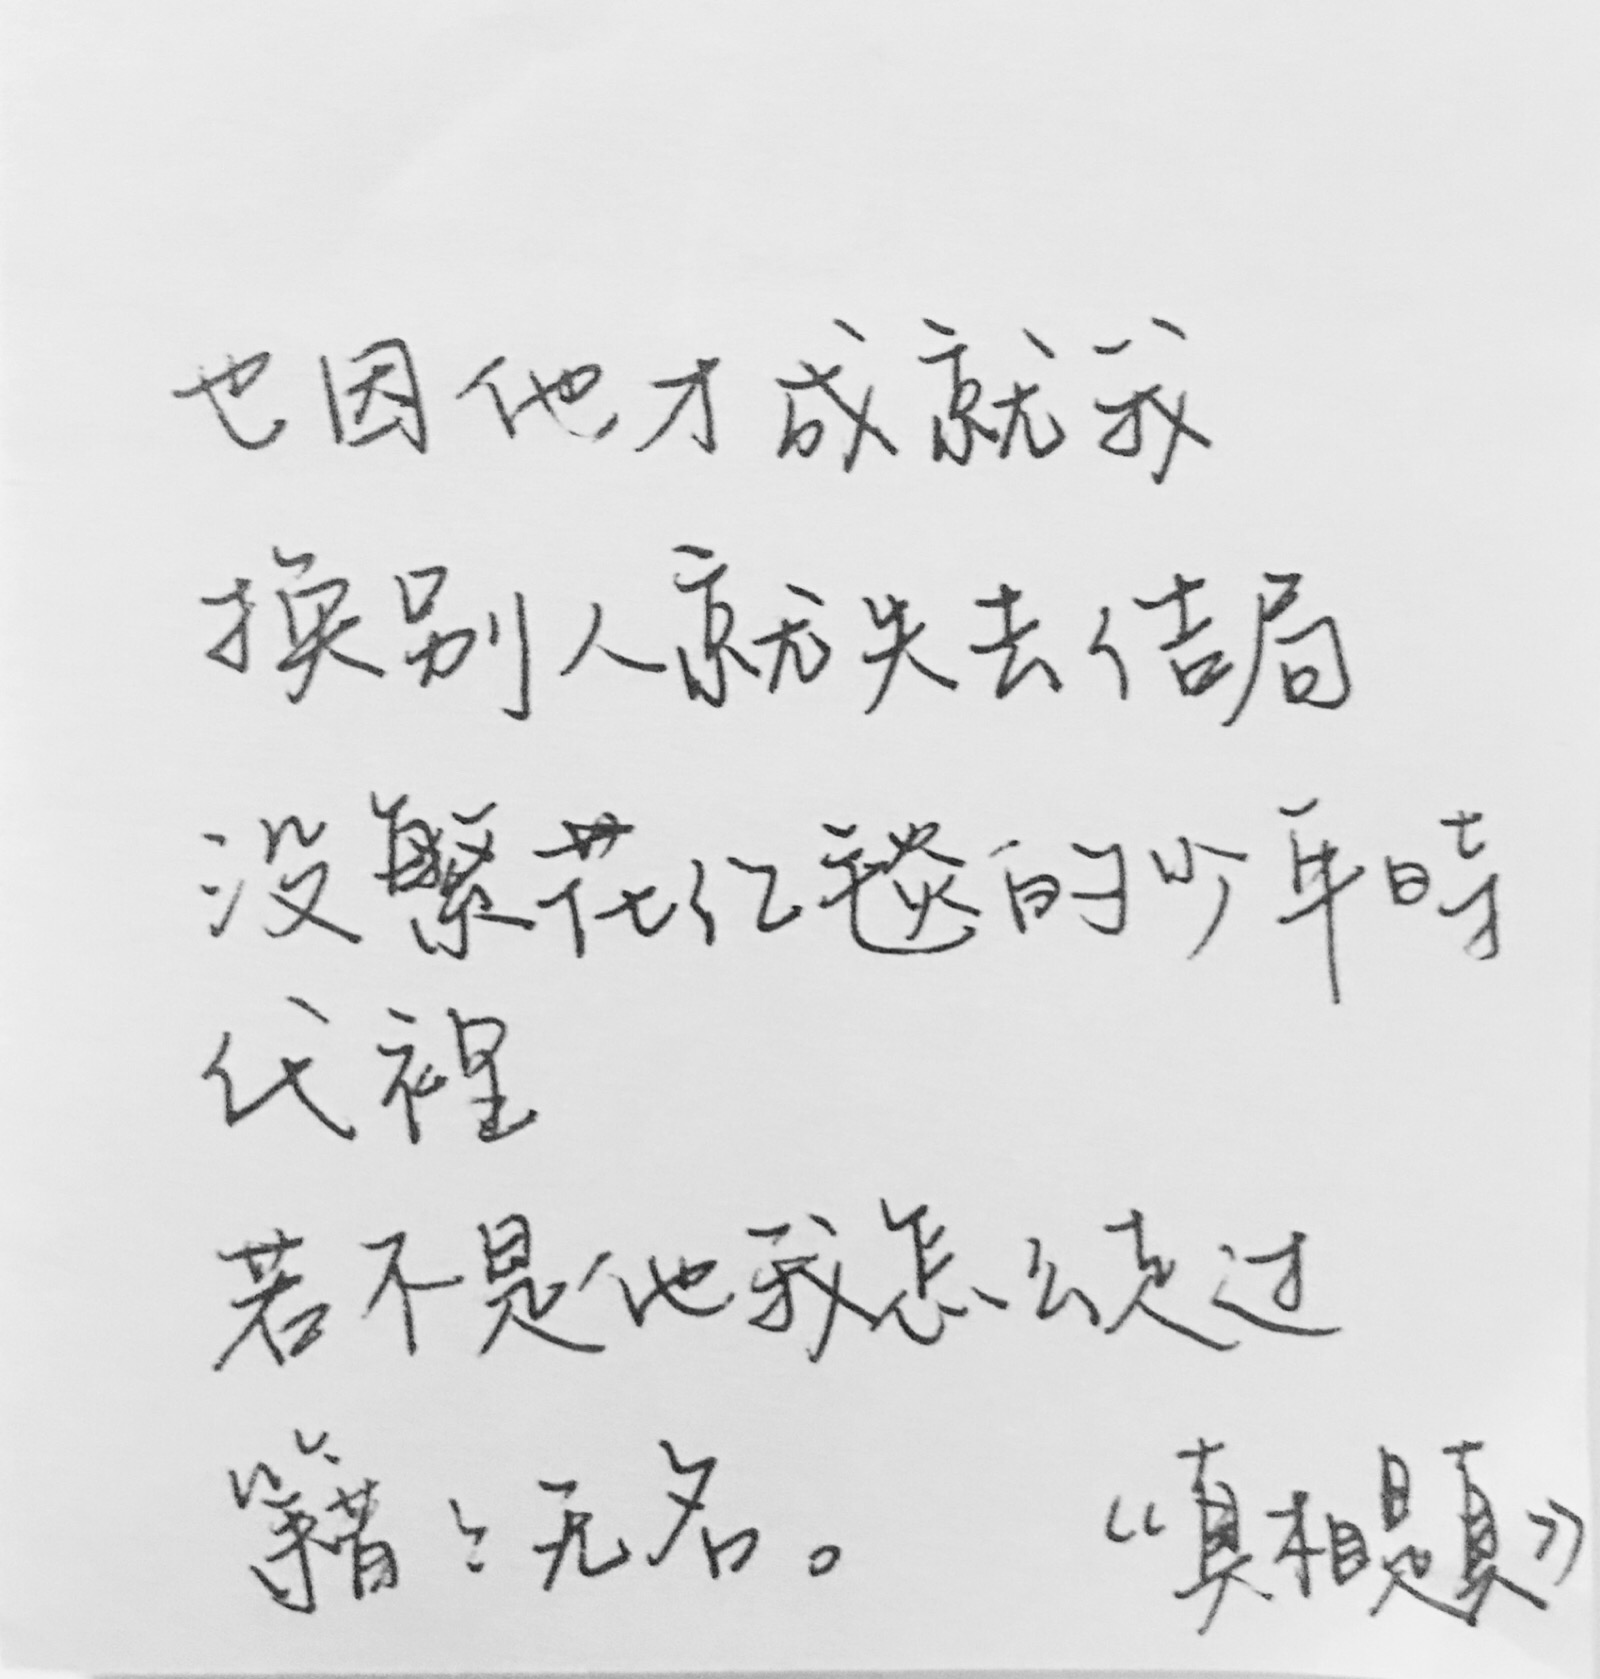 也因他才成就我
换别人就失去结局
没繁花红毯的少年時
代裡
若不是他我怎么绕过
籍籍无名。 《真相是真》